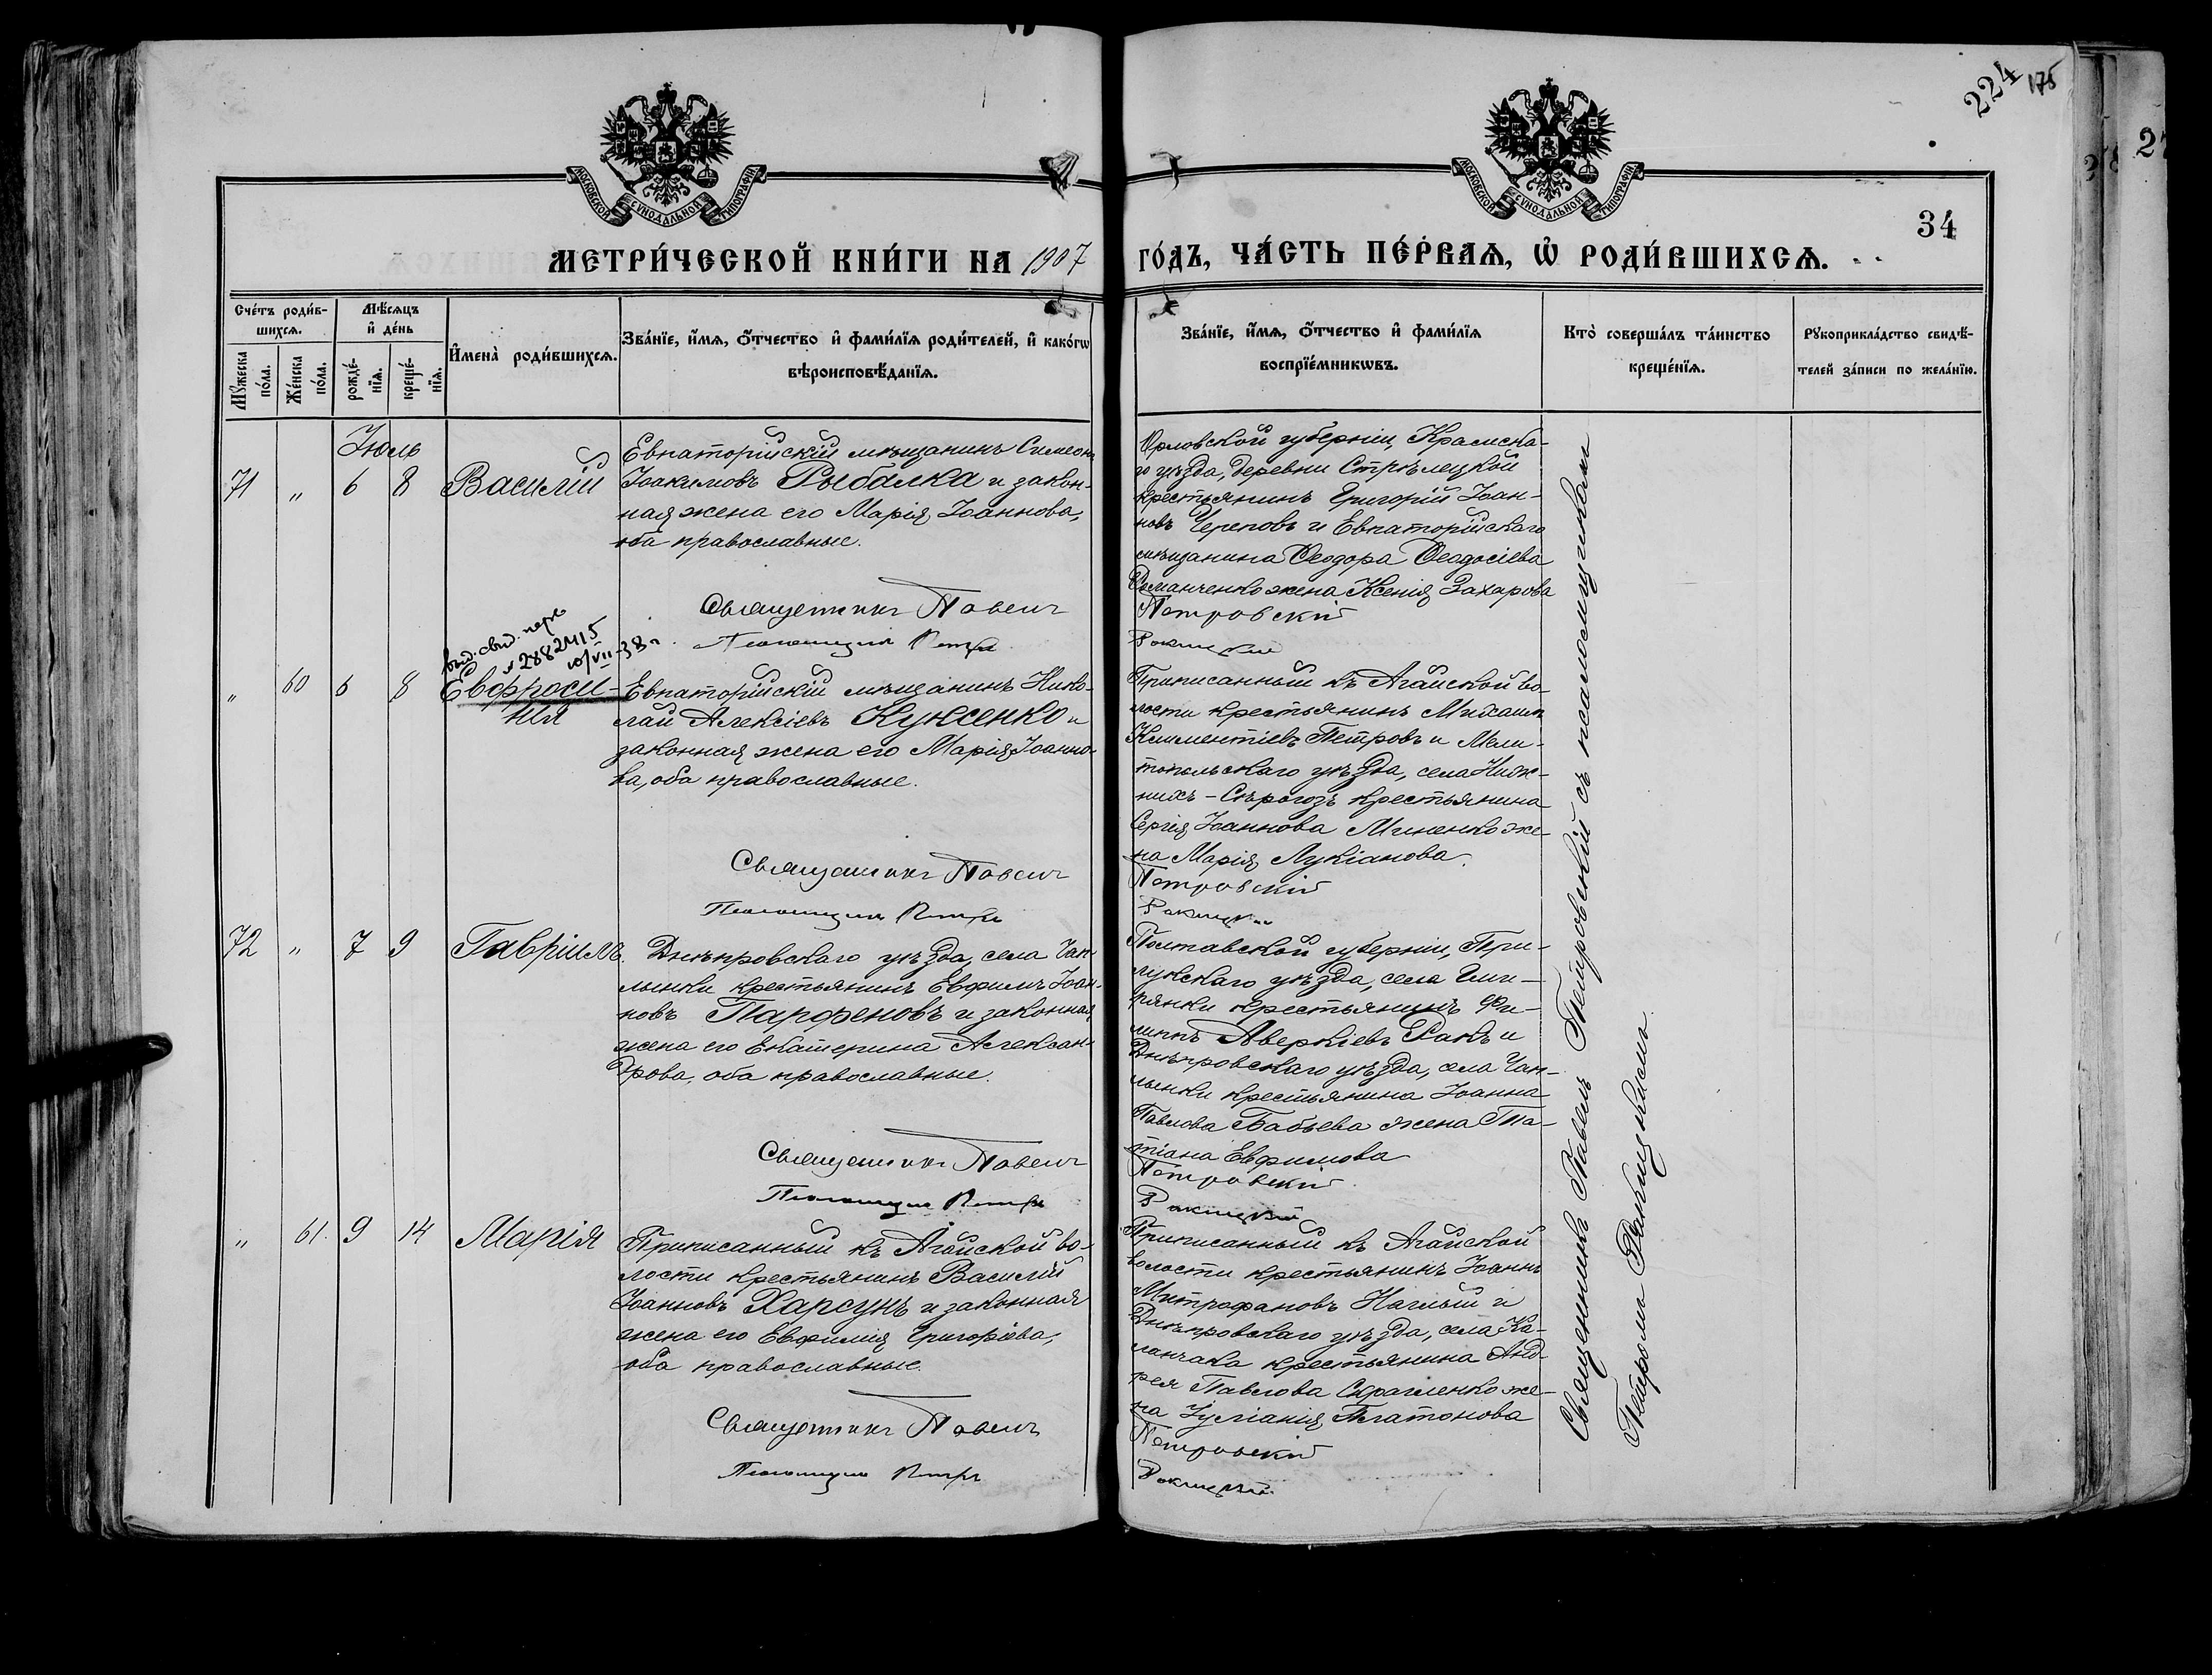 224 175
34
МОСКОВСКОЙ СѴНОДАЛЬНОЙ ТИПОГРАФІИ
МОСКОВСКОЙ СѴНОДАЛЬНОЙ ТИПОГРАФІИ
МЕТРИ́ЧЕСКОЙ КНИ́ГИ НА 1907
ГО́ДЪ, ЧА́СТЬ ПЕ́РВАѦ, Ѿ РОДИ́ВШИХСѦ.
Сче́тъ роди́в-
шихсѧ.
Мꙋжеска по́ла.
Же́нска по́ла.
Мѣ́сѧцъ и҆ де́нь
рожде́-нїѧ.
креще́-нїѧ.
И҆мена̀ роди́вшихсѧ.
Зва́нїе, и҆́мѧ, ѻ҆́тчество и҆ фами́лїѧ роди́телей, и҆ како́гѡ
вѣроисповѣ́данїѧ.
Зва́нїе, и҆́мѧ, ѻ҆́тчество и҆ фами́лїѧ
воспрїе́мникѡвъ.
Кто̀ соверша́лъ та́инство
креще́нїѧ.
Рꙋкоприкла́дство свидѣ́-
телей за́писи по жела́нїю.
Іюль
71 „ 6 8 Василій
Евпаторійскій мѣщанинъ Симеонъ
Іоакимовъ Рыбалка и закон-
ная жена его Марія Іоаннова,
оба православные.
Священникъ Павелъ
Псаломщикъ Петръ
Орловской губерніи, Кромска-
го уѣзда, деревни Стрѣлецкой
крестьянинъ Григорій Іоан-
новъ Череповъ и Евпаторійскаго
мѣщанина Ѳеодора Ѳеодосіева
Романченко жена Ксенія Захарова
Петровскій
Ракицкій
выд. свид. 
288 2415
10/VII-38 г.
„ 60 6 8 Евфроси-
нія
Евпаторійскій мѣщанинъ Нико-
лай Алексіевъ Кужсенко и
законная жена его Марія Іоанно-
ва, оба православные.
Священникъ Павелъ
Псаломщикъ Петръ
Приписанный къ Агайской во-
лости крестьянинъ Михаилъ
Климентіевъ Петровъ и Мели-
топольскаго уѣзда, села Ниж-
нихъ-Сѣрогозъ крестьянина
Сергія Іоаннова Миненко же-
на Марія Лукіанова.
Петровскій
Ракицкій
72 „ 7 9 Гавріилъ.
Днѣпровскаго уѣзда, села Чап-
лынки крестьянинъ Евфимъ Іоан-
новъ Парфеновъ и законная
жена его Екатерина Алексан-
дрова, оба православные.
Священникъ Павелъ
Псаломщикъ Петръ
Полтавской губерніи, При-
лукскаго уѣзда, села
крестьянинъ Фи-
липпъ Аверкіевъ Ракъ и
Днѣпровскаго уѣзда, села Чап-
лынки крестьянина Іоанна
Павлова Бабьева жена Та-
тіана Евфимова
Петровскій
Ракицкій
„ 61. 9 14 Марія
Приписанный къ Агайской во-
лости крестьянинъ Василій
Іоанновъ Харсунъ и законная
жена его Евфимія Григоріева,
оба православные.
Священникъ Павелъ
Псаломщикъ Петръ
Приписанный къ Агайской
волости крестьянинъ Іоаннъ
Митрофановъ Наглый и
Днѣпровскаго уѣзда, села Ка-
ланчака крестьянина Анд-
рея Павлова же-
на Іуліанія Платонова
Петровскій
Ракицкій
Священникъ Павелъ Петровскій съ псаломщикомъ
Петромъ Ракицкимъ.